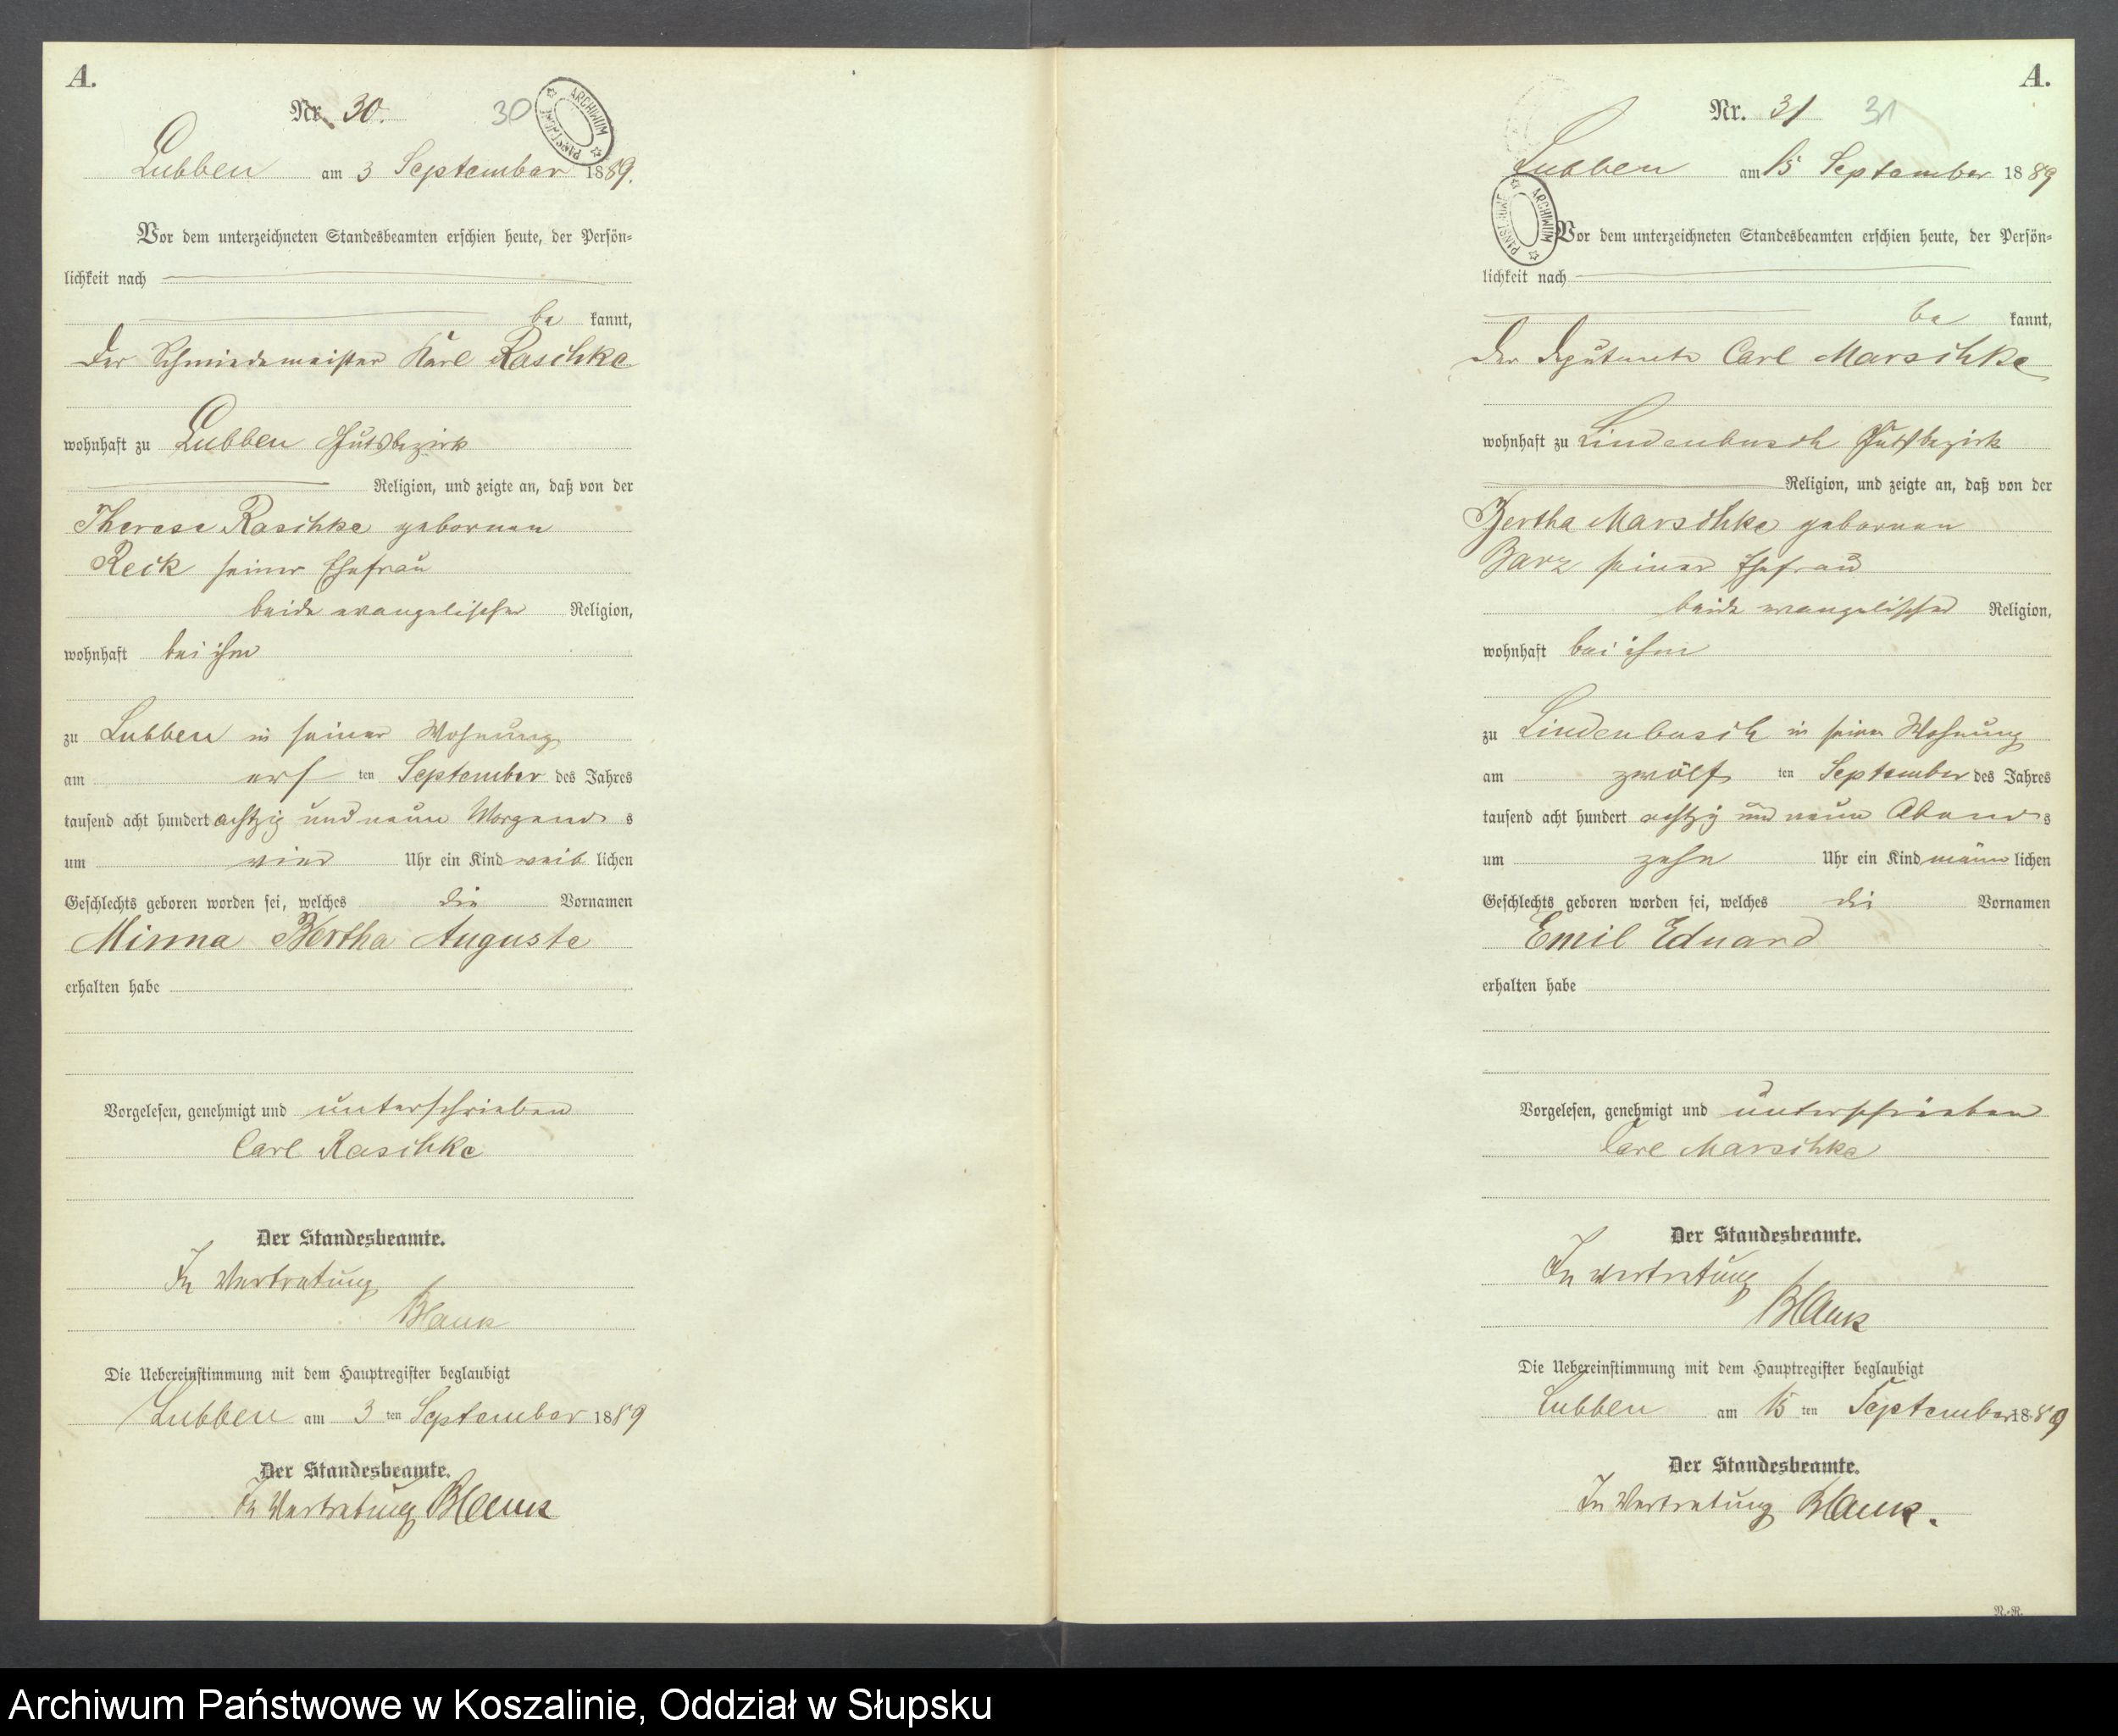 A.
Nr. 30. 30
ARCHIWUM PAŃSTWOWE
Lubben am 3 September 1889.
Vor dem unterzeichneten Standesbeamten erschien heute, der Persön-
lichkeit nach
be kannt,
der Schmiedemeister Karl Raschke
wohnhaft zu Lubben Gutsbezirk
Religion, und zeigte an, daß von der
Therese Raschke gebornen
Reck seiner Ehefrau
beide evangelischer Religion,
wohnhaft bei ihm
zu Lubben in seiner Wohnung
am ers ten September des Jahres
tausend acht hundert achtzig und neun Morgens
um vier Uhr ein Kind weib lichen
Geschlechts geboren worden sei, welches die Vornamen
Minna Bertha Auguste
erhalten habe
Vorgelesen, genehmigt und unterschrieben
Carl Raschke
Der Standesbeamte.
In Vertretung
Blank
Die Uebereinstimmung mit dem Hauptregister beglaubigt
Lubben am 3 ten September 1889
Der Standesbeamte.
In Vertretung Blank
A.
Nr. 31 31
Lubben am 15 September 1889
ARCHIWUM PAŃSTWOWE
Vor dem unterzeichneten Standesbeamten erschien heute, der Persön-
lichkeit nach
be kannt,
der Deputant Carl Marschke
wohnhaft zu Lindenbusch Gutsbezirk
Religion, und zeigte an, daß von der
Bertha Marschke gebornen
Barz seiner Ehefrau
beide evangelischer Religion,
wohnhaft bei ihm
zu Lindenbusch in seiner Wohnung
am zwölf ten September des Jahres
tausend acht hundert achtzig und neun Abends
um zehn Uhr ein Kind männ lichen
Geschlechts geboren worden sei, welches die Vornamen
Emil Eduard
erhalten habe
Vorgelesen, genehmigt und unterschrieben
Carl Marschke
Der Standesbeamte.
In Vertretung
Blank
Die Uebereinstimmung mit dem Hauptregister beglaubigt
Lubben am 15 ten September 1889
Der Standesbeamte.
In Vertretung Blank.
N.-R.
Archiwum Państwowe w Koszalinie, Oddział w Słupsku